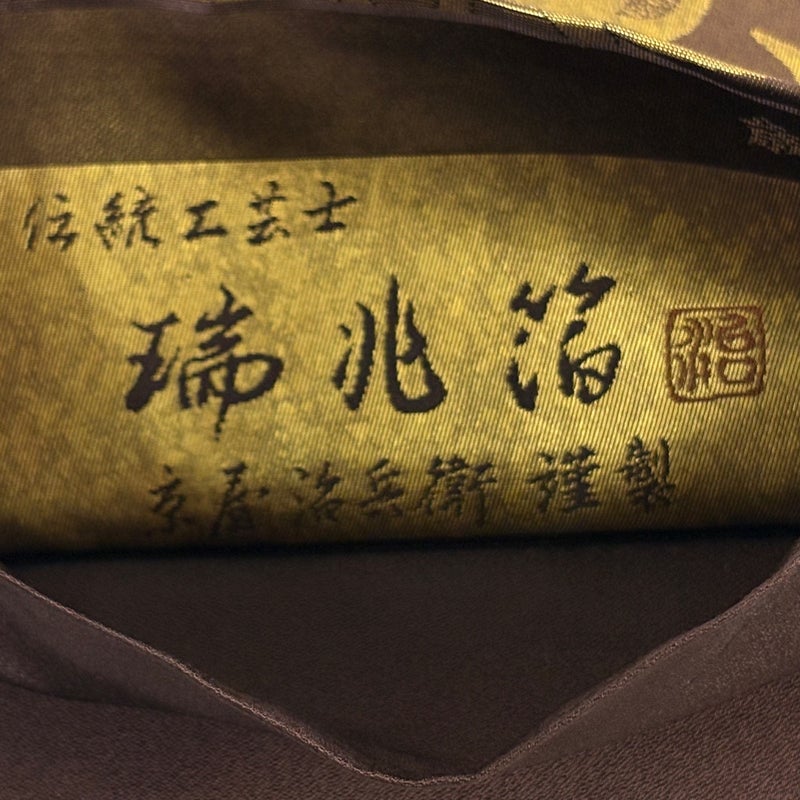 伝統工芸士
瑞兆箔
治
京屋治兵衛 謹製